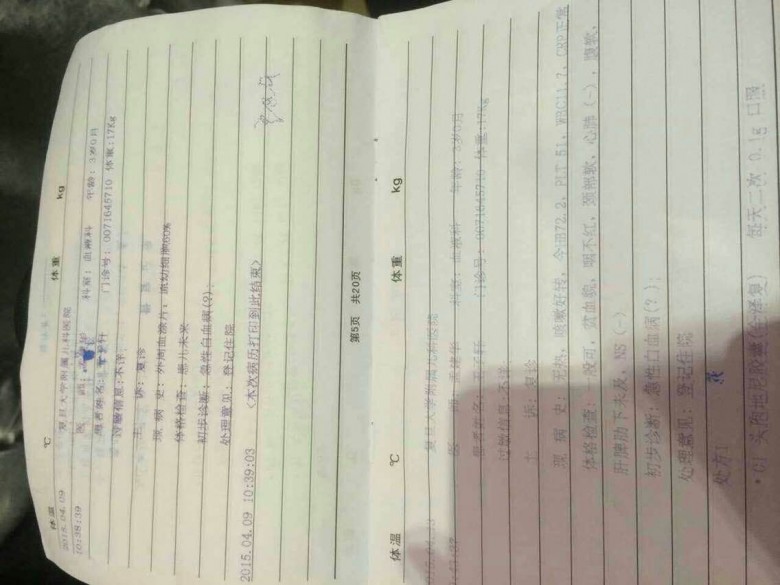 体温 ℃ 体重 kg
2015.04.09 复旦大学附属儿科医院
10:38:39 科室:血液科 年龄:3岁0月
患者姓名: 门诊号:0071645710 体重:17Kg
过敏信息:不详
主 诉:复诊
现 病 史:外周血涂片:血幼细胞60%
体格检查:患儿未来
初步诊断:急性白血病(?);
处理意见:登记住院
2015.04.09 10:39:03 <本次病历打印到此结束>
第5页 共20页
体温 ℃ 体重 kg
复旦大学附属儿科医院
科室:血液科 年龄:3岁0月
患者姓名: 门诊号:0071645710 体重:17Kg
过敏信息:不详
主 诉:复诊
现 病 史: 咳嗽好转,今血72.2,PLT 51,WBC11.7,CRP正常
体格检查: 贫血貌,咽不红,颈部软,心肺(-),腹软,
肝脾肋下未及,NS(-)
初步诊断:急性白血病(?);
处理意见:登记住院
处方:
*01 头孢地尼胶囊 每天二次 0.1g 口服